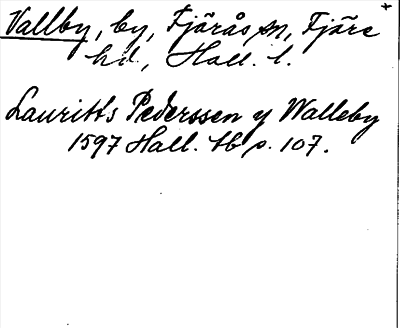 Vallby, by, Fjärås sn, Fjäre +
hd., Hall. l.
Lauritts Pederssen y Walleby
1597 Hall. tb p. 107.